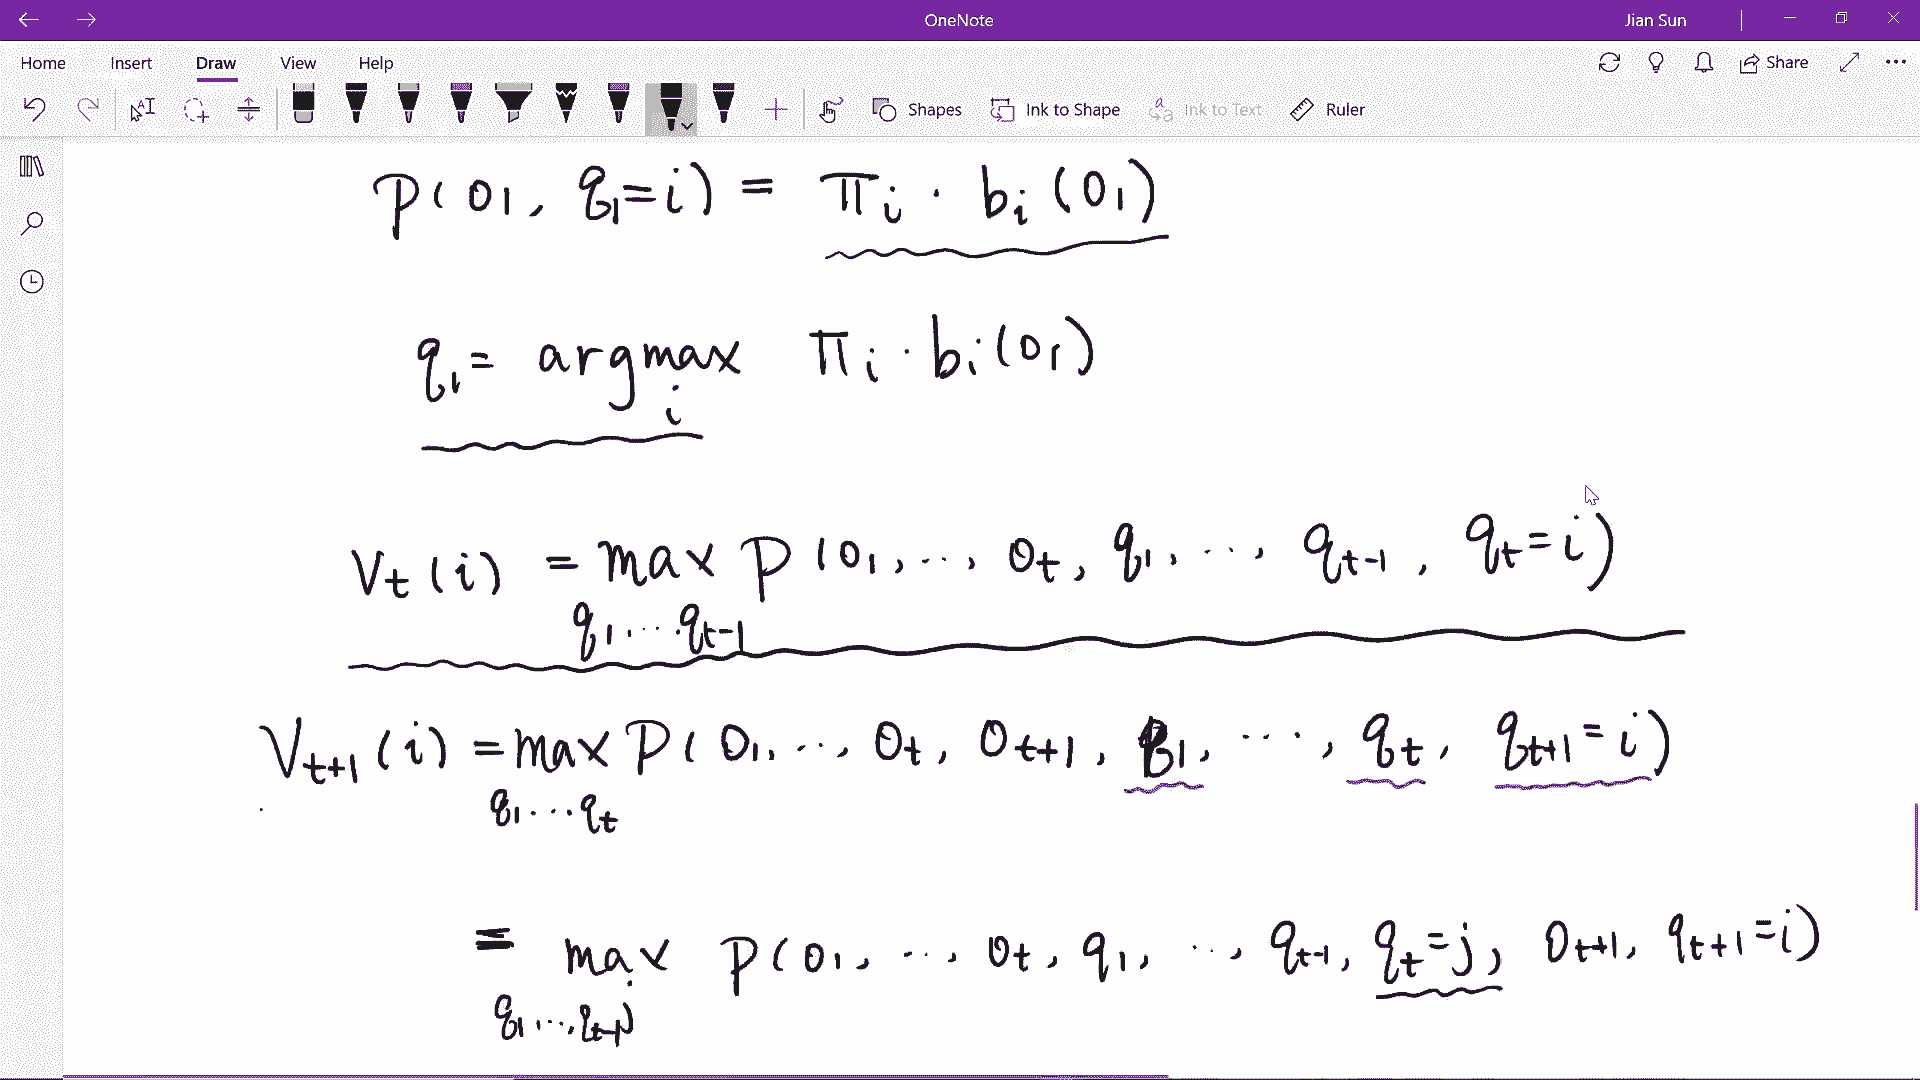 OneNote
Jian Sun
Home Insert Draw View Help
Share
Shapes Ink to Shape Ink to Text Ruler
P(O1, q1=i) = πi · bi(O1)
q1 = argmax πi · bi(O1)
i
Vt(i) = max P(O1, ..., Ot, q1, ..., qt-1, qt=i)
q1...qt-1
Vt+1(i) = max P(O1, ..., Ot, Ot+1, q1, ..., qt, qt+1=i)
q1...qt
= max P(O1, ..., Ot, q1, ..., qt-1, qt=j, Ot+1, qt+1=i)
q1, ..., qt-1, j